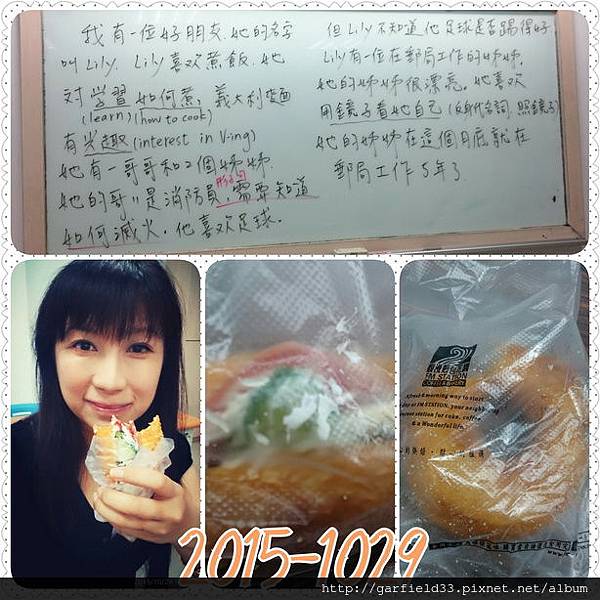 我有一位好朋友.她的名字
叫Lily. Lily喜欢煮飯.她
対學習如何煮,義大利麵
(learn)(how to cook)
有兴趣(interest in V-ing)
她有一哥哥和2個姊姊.
她的哥〃是消防員 需要知道
如何滅火.他喜欢足球.
但Lily不知道他足球是否踢得好
Lily有一位在郵局工作的姊姊.
她的姊姊很漂亮.她喜欢
用鏡子看她自己(反身代名詞.照鏡子)
她的姊姊在這個月底就在
郵局工作5年了
FM STATION
COFFEE & BAKERY
A fresh & morning way to start
day at FM STATION, your neighb
orest station for cake, coffee
& a Wonderful life.
2015-1029
http://garfield33.pixnet.net/album